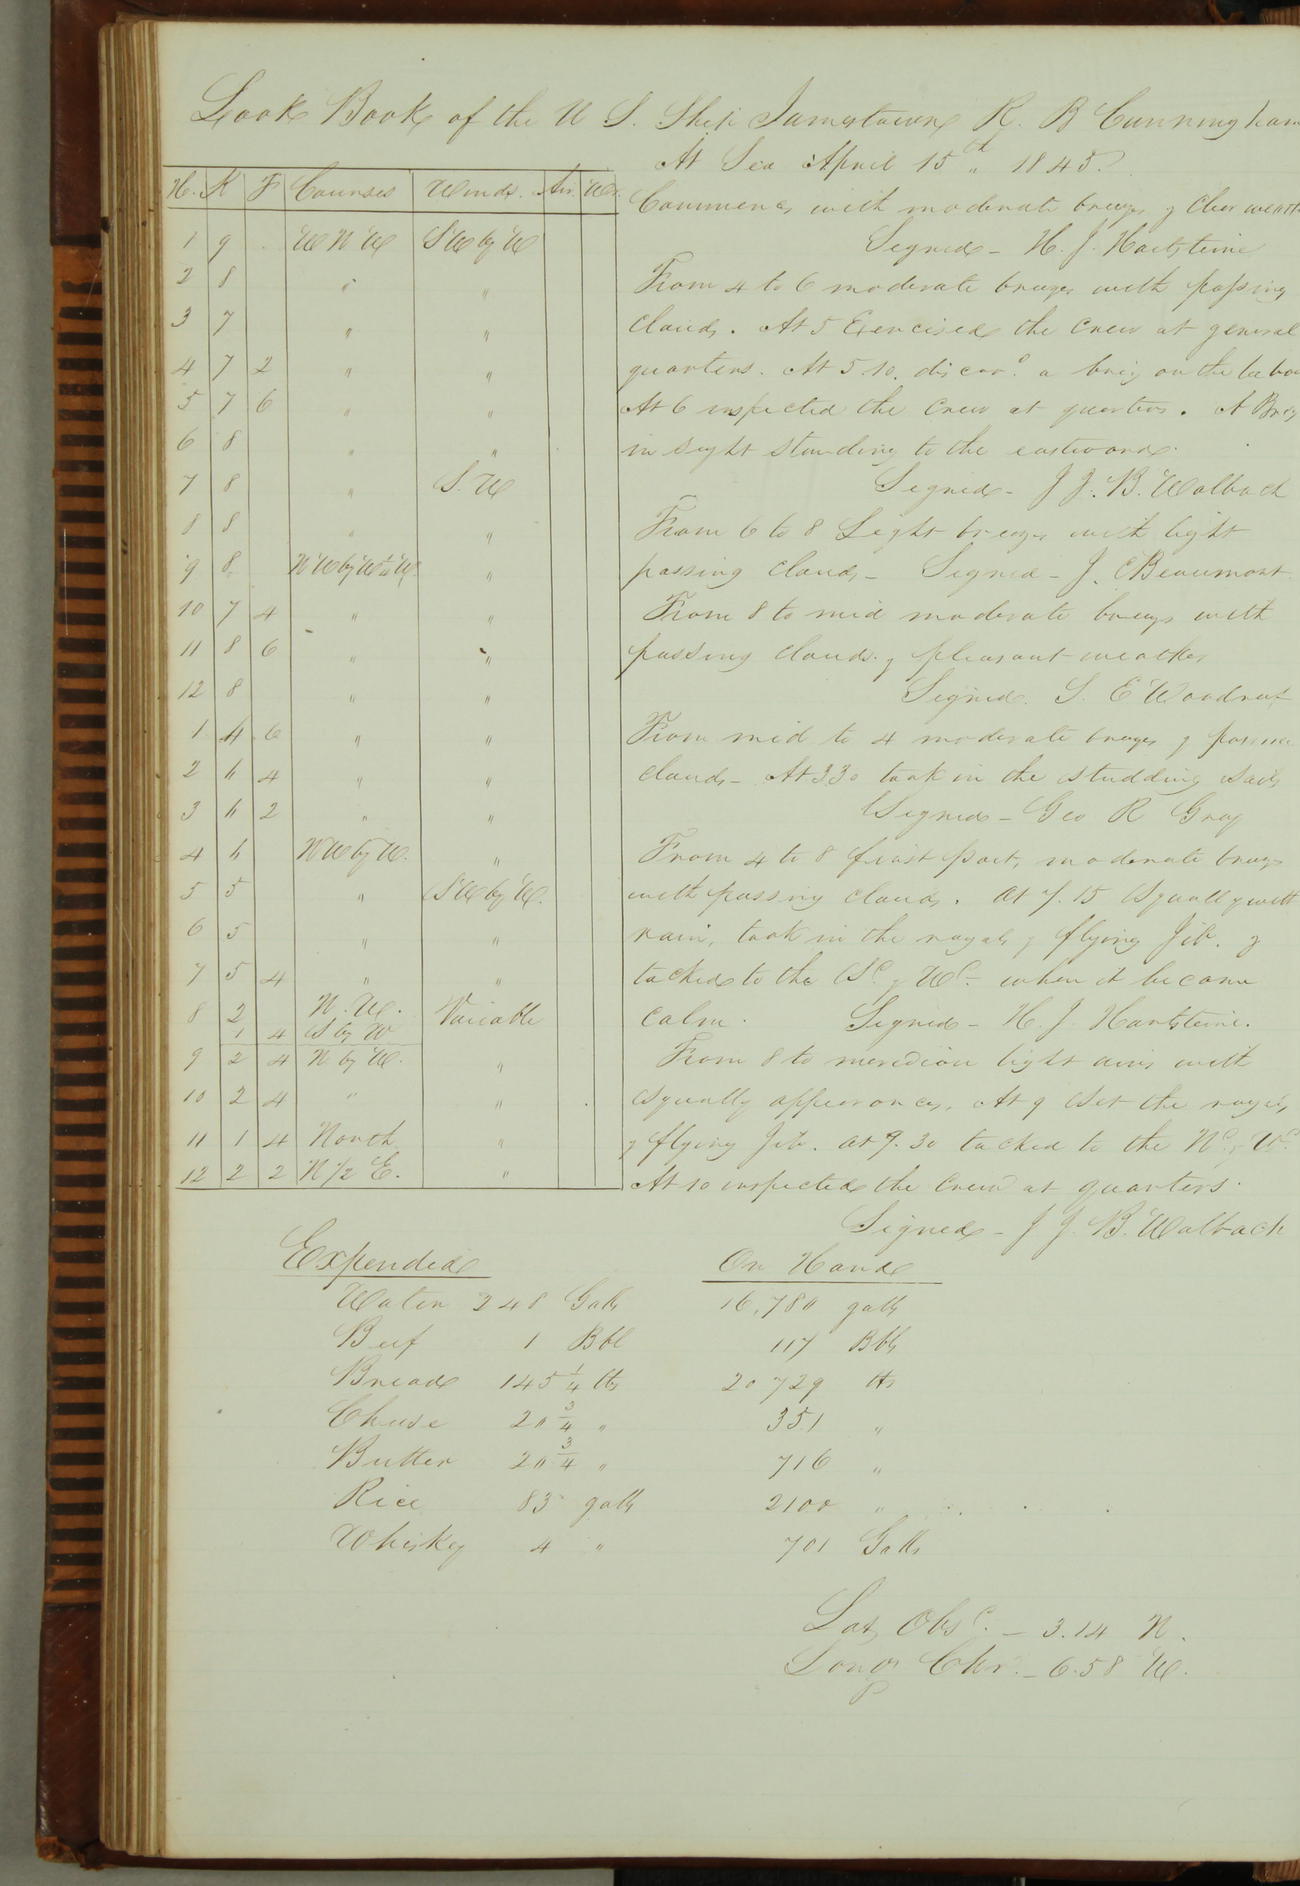 Look Book of the U S. Ship Jamestown R. B Cunningham
At Sea April 15th 1845
H. K F Courses Winds. Air. Wr.
1 9 W N W SW by W
2 8 " "
3 7 " "
4 7 2 " "
5 7 6 " "
6 8 " "
7 8 " S. W
8 8 " "
9 8 NW by W ½ W "
10 7 4 " "
11 8 6 " "
12 8 " "
1 4 6 " "
2 h 4 " "
3 h 2 " "
4 h NW by W. "
5 5 " SW by W.
6 5 " "
7 5 4 " "
8 2 N. W. Variable
1 4 S by W
9 2 4 N by W. "
10 2 4 " "
11 1 4 North "
12 2 2 N ½ E. "
Commences with moderate breezes & clear weath
Signed - H. J. Hartsteine
From 4 to 6 moderate breezes with passing
clouds. At 5 Exercised the crew at general
quarters. At 5.10. discovd. a brig on the lee bow
At 6 inspected the crew at quarters. A Brig
in sight standing to the eastward.
Signed - J J. B. Walbach
From 6 to 8 Light breezes with light
passing clouds - Signed - J. C Beaumont
From 8 to mid moderate breezes with
passing clouds & pleasant weather
Signed. S. E Woodruf
From mid to 4 moderate breezes & passing
clouds - At 3 30 took in the studding sails
Signed - Geo R Gray
From 4 to 8 first part, moderate breezes
with passing clouds. at 7.15 Squally with
rain, took in the royals & flying Jib. &
tacked to the Sd. & Wd. when it became
calm. Signed - H. J. Hartsteine.
From 8 to meredian light airs with
squally appearances. At 9 Set the royals,
& flying Jib. at 9.30 tacked to the Nd. & Wd.
At 10 inspected the crew at quarters.
Signed - J J. B. Walbach
Expended On Hand
Water 248 Galls 16,780 galls
Beef 1 Bbl 117 Bbls
Bread 145 1/4 lbs 20 729 lbs
Cheese 20 3/4 " 351 "
Butter 20 3/4 " 716 "
Rice 83 galls 2100 "
Whiskey 4 " 701 Galls
Lat, Obsd. - 3.14 N.
Long Chr. - 6.58 W.